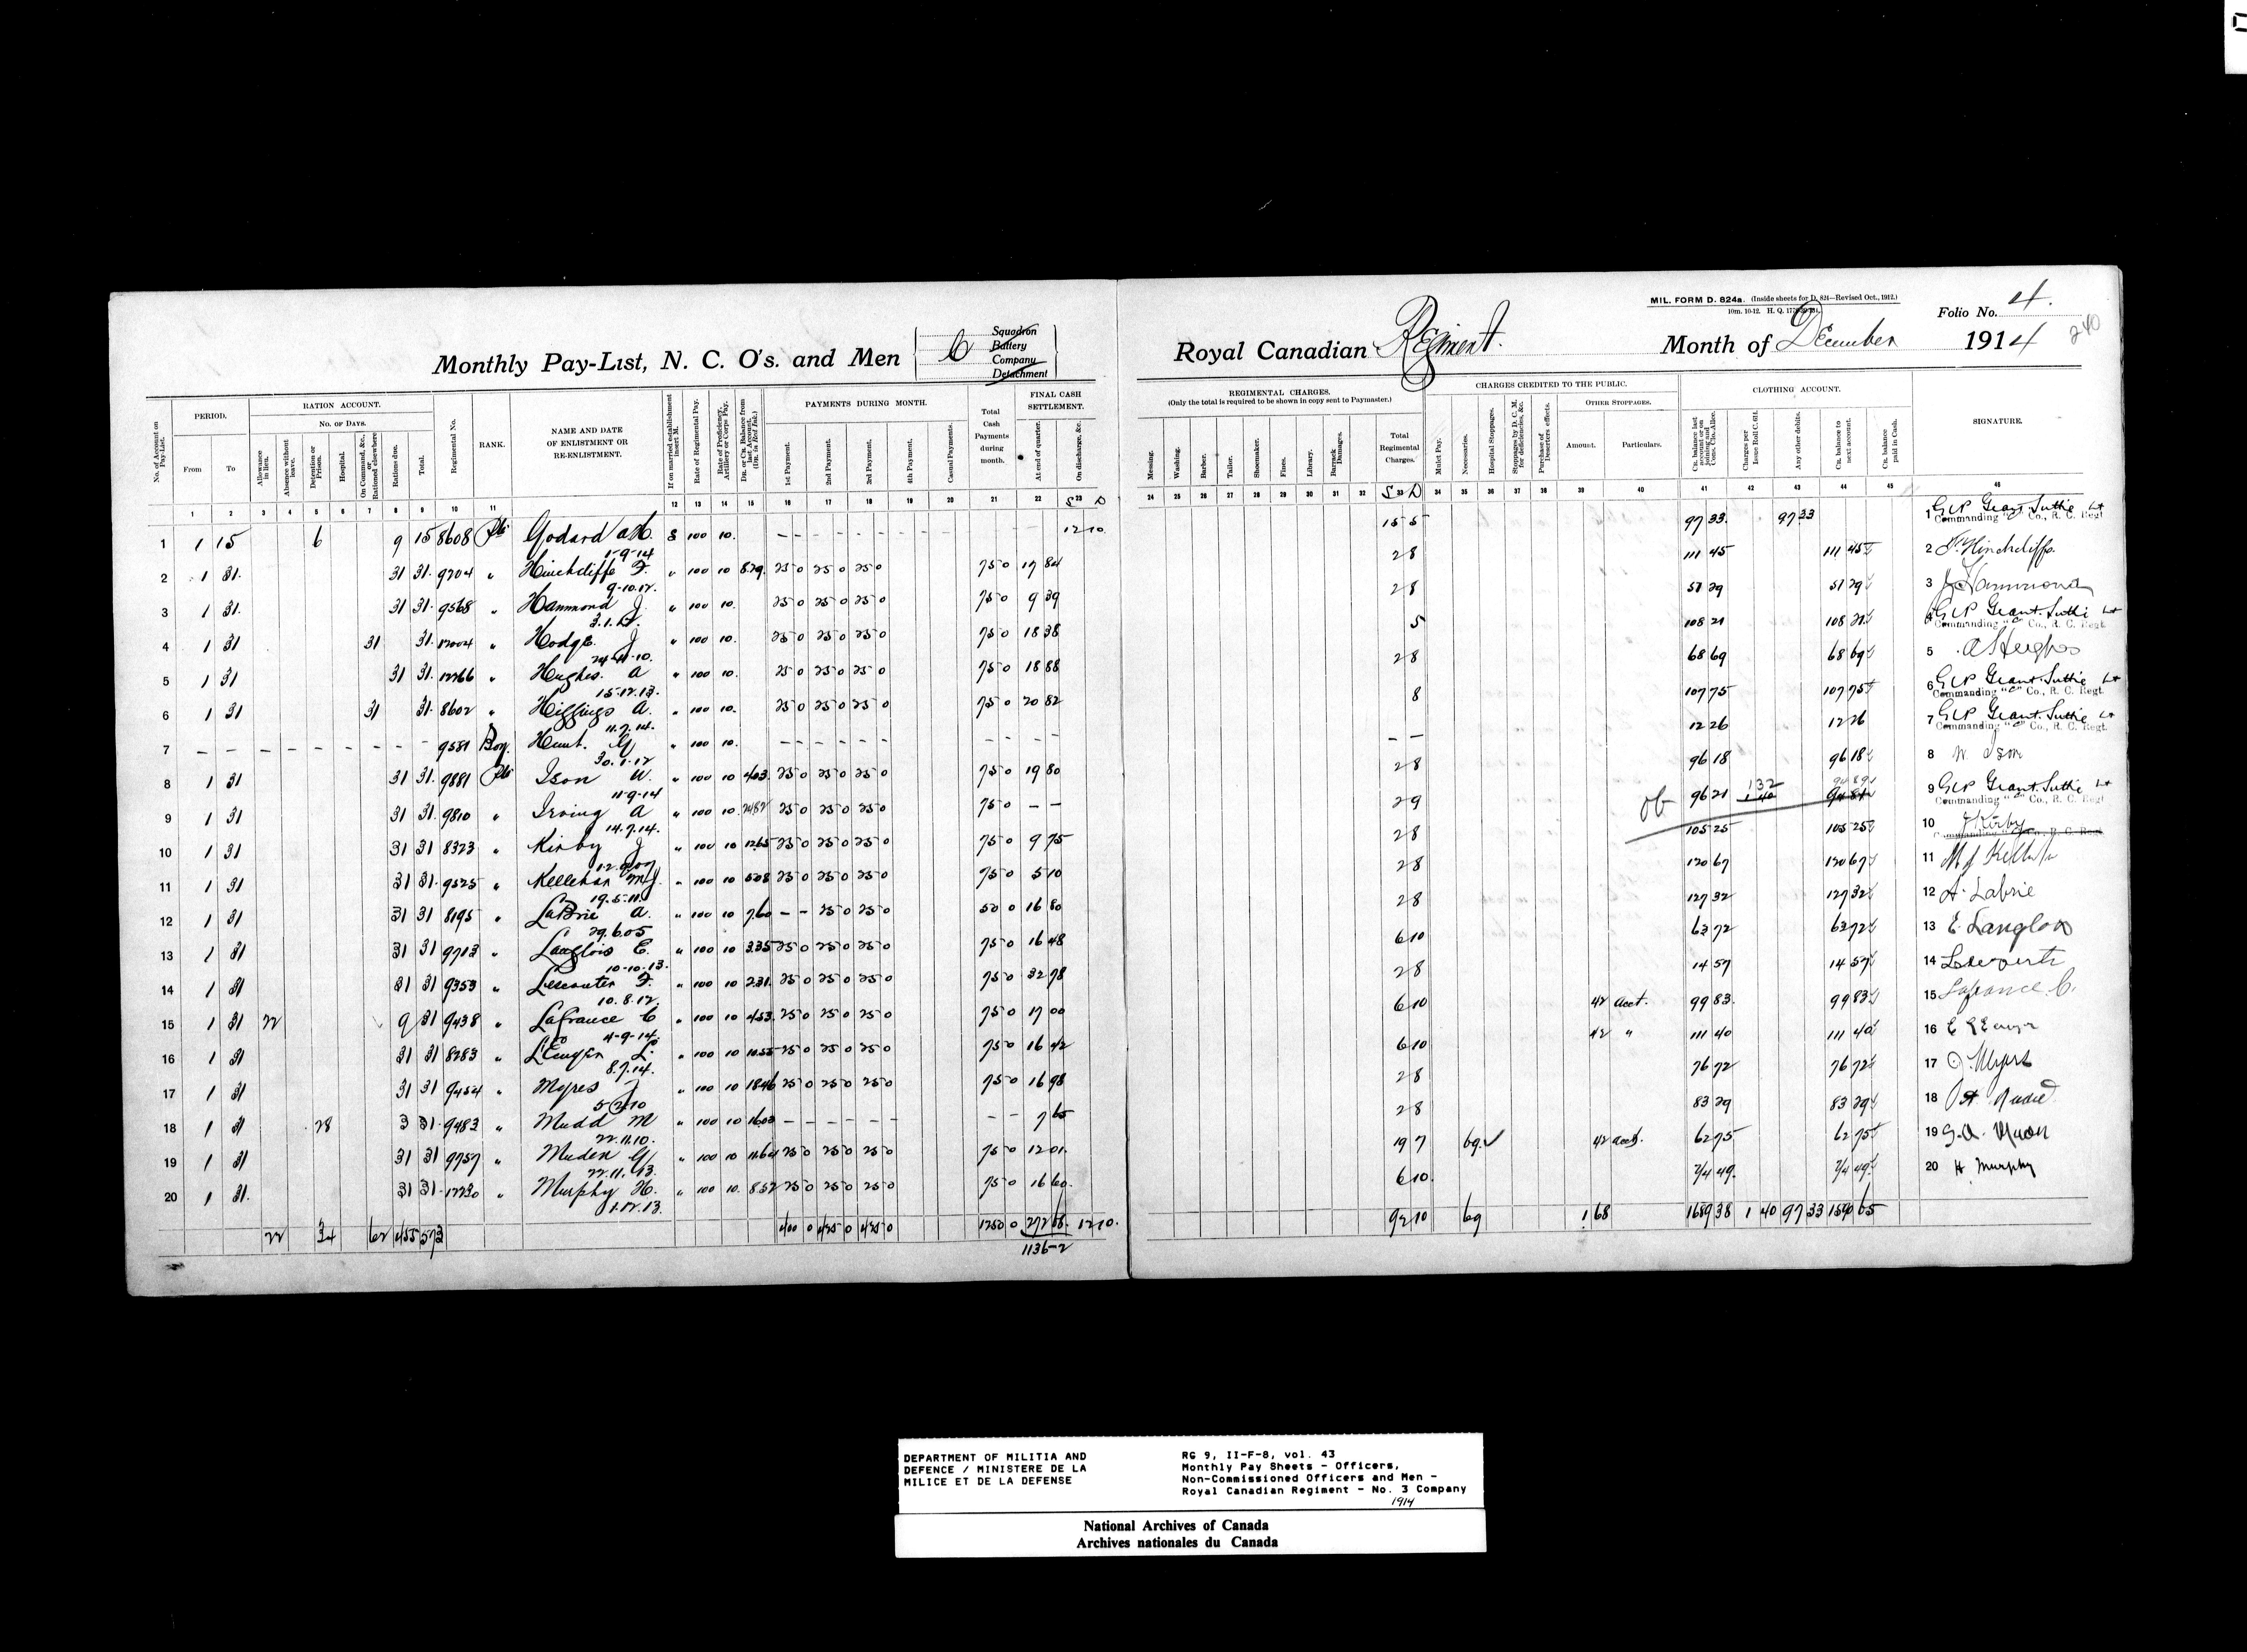 MIL. FORM D. 824a. (Inside sheets for D. 824—Revised Oct., 1912.)
10m. 10-12. H. Q.
Folio No. 4.
240
Monthly Pay-List, N. C. O's. and Men C Squadron Battery Company Detachment
Royal Canadian Regiment. Month of December 1914
No. of Account on Pay-List.
PERIOD. From To
RATION ACCOUNT.
No. of Days.
Allowance in lieu. Absence without leave. Detention or Prison. Hospital. On Command, &c., or Rationed elsewhere Rations due. Total.
Regimental No.
RANK.
NAME AND DATE OF ENLISTMENT OR RE-ENLISTMENT.
If on married establishment insert M.
Rate of Regimental Pay.
Rate of Proficiency, Artillery or Corps Pay.
Dr. or Cr. Balance from last Account. (Dr. in Red Ink.)
PAYMENTS DURING MONTH.
1st Payment. 2nd Payment. 3rd Payment. 4th Payment. Casual Payments.
Total Cash Payments during month.
FINAL CASH SETTLEMENT.
At end of quarter. On discharge, &c.
REGIMENTAL CHARGES.
(Only the total is required to be shown in copy sent to Paymaster.)
Messing. Washing. Barber. Tailor. Shoemaker. Fines. Library. Barrack Damages.
Total Regimental Charges.
CHARGES CREDITED TO THE PUBLIC.
Mulct Pay. Necessaries. Hospital Stoppages. Stoppages by D. C. M. for deficiencies, &c. Purchase of Deserters effects.
OTHER STOPPAGES.
Amount. Particulars.
CLOTHING ACCOUNT.
Cr. balance last account or on joining and Cons. Clo. Allce. Charges per Issue Roll C. 611. Any other debits. Cr. balance to next account. Cr. balance paid in Cash.
SIGNATURE.
1 2 3 4 5 6 7 8 9 10 11 12 13 14 15 16 17 18 19 20 21 22 23
24 25 26 27 28 29 30 31 32 33 34 35 36 37 38 39 40 41 42 43 44 45 46
1 1 15 6 9 15 8608 Pte Godard A H. S 100 10. 12 10 15 5 97 33. 97 33 1 GCP Grant. Suttie Lt
1-9-14 Commanding "C" Co., R. C. Regt.
2 1 31. 31 31. 9704 " Hinchcliffe F. " 100 10 8.79. 25 0 25 0 25 0 75 0 17 84 28 111 45 111 45 2 F. Hinchcliffe
9-10.12.
3 1 31. 31 31. 9568 " Hammond J. " 100 10. 25 0 25 0 25 0 75 0 9 39 28 51 29 51 29 3 J Hammond
3.1.12.
4 1 31 31 31. 12004 " Hodge. J " 100 10. 25 0 25 0 25 0 75 0 18 38 5 108 21 108 21 4 GCP Grant. Suttie Lt
24-11-10. Commanding "C" Co., R. C. Regt.
5 1 31 31 31. 12266 " Hughes. A " 100 10. 25 0 25 0 25 0 75 0 18 88 28 68 69 68 69 5 A Hughes
15.12.13.
6 1 31 31 31. 8602 " Higgings A. " 100 10. 25 0 25 0 25 0 75 0 20 82 8 107 75 107 75 6 GCP Grant. Suttie Lt
11.7.14. Commanding "C" Co., R. C. Regt.
7 9581 Boy. Hunt. G " 100 10. 12 26 12 26 7 GCP Grant. Suttie Lt
30.1.12 Commanding "C" Co., R. C. Regt.
8 1 31 31 31. 9881 Pte Ison W. " 100 10 4.03. 25 0 25 0 25 0 75 0 19 80 28 96 18 96 18 8 W. Ison
11-9-14
9 1 31 31 31. 9810 " Irving A " 100 10 25 0 25 0 25 0 75 0 — — 29 Ob 96 21 1 32 1 40 94 89 94 81 9 GCP Grant. Suttie Lt
14.7.14. Commanding "C" Co., R. C. Regt.
10 1 31 31 31 8323 " Kirby J " 100 10 12.65 25 0 25 0 25 0 75 0 9 75 28 105 25 105 25 10 J Kirby
11 1 31 31 31. 9525 " Kellehar M J. " 100 10 5.08 25 0 25 0 25 0 75 0 5 10 28 120 67 120 67 11
19.5.11.
12 1 31 31 31 8195 " LaBrie A. " 100 10 7.60 — — 25 0 25 0 50 0 16 80 28 127 32 127 32 12 A. Labrie
29.6.05
13 1 31 31 31 9713 " Langlois E. " 100 10 3.35 25 0 25 0 25 0 75 0 16 48 6 10 63 72 63 72 13 E. Langlois
10-10-13.
14 1 31 31 31 9353 " Lescouter F. " 100 10 2.31. 25 0 25 0 25 0 75 0 32 78 28 14 57 14 57 14
10.8.12.
15 1 31 22 9 31 9438 " Lafrance C " 100 10 4.53. 25 0 25 0 25 0 75 0 17 00 6 10 42 acct. 99 83. 99 83 15 Lafrance C.
4-9-14.
16 1 31 31 31 8283 " " 100 10 10.55 25 0 25 0 25 0 75 0 16 42 6 10 42 " 111 40 111 40 16
8.7.14.
17 1 31 31 31 9454 " Myres J " 100 10 18.46 25 0 25 0 25 0 75 0 16 98 28 76 72 76 72 17 J. Myres
18 1 31 28 3 31. 9483 " Mudd M " 100 10 16.03 — — 7 65 28 83 29 83 29 18
22.11.10.
19 1 31 31 31 9757 " Muden G " 100 10 11.64 25 0 25 0 25 0 75 0 12 01. 19 7 69. 42 acct. 62 75 62 75 19
22.11.13.
20 1 31. 31 31. 12230 " Murphy H. " 100 10. 8.52 25 0 25 0 25 0 75 0 16 60. 6 10. 74 49. 74 49 20 H. Murphy
1.12.13.
22 34 62 455 573 400 0 425 0 425 0 1250 0 272 68. 12 10. 92 10 69 1 68 1689 38 1 40 97 33 1590 65
1136-2
DEPARTMENT OF MILITIA AND
DEFENCE / MINISTERE DE LA
MILICE ET DE LA DEFENSE
RG 9, II-F-8, vol. 43
Monthly Pay Sheets - Officers,
Non-Commissioned Officers and Men -
Royal Canadian Regiment - No. 3 Company
1914
National Archives of Canada
Archives nationales du Canada